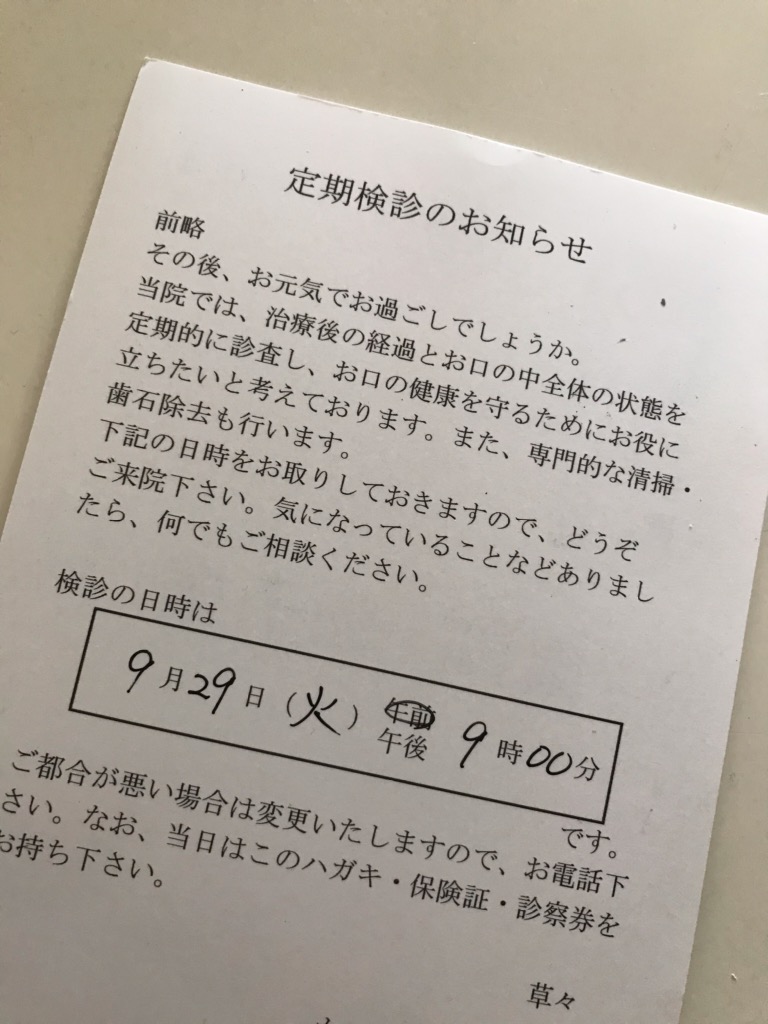 定期検診のお知らせ
前略
その後、お元気でお過ごしでしょうか。
当院では、治療後の経過とお口の中全体の状態を
定期的に診査し、お口の健康を守るためにお役に
立ちたいと考えております。また、専門的な清掃・
歯石除去も行います。
下記の日時をお取りしておきますので、どうぞ
ご来院下さい。気になっていることなどありまし
たら、何でもご相談ください。
検診の日時は
9月29日(火) 午前 9時00分
午後
です。
ご都合が悪い場合は変更いたしますので、お電話下
さい。なお、当日はこのハガキ・保険証・診察券を
お持ち下さい。
草々